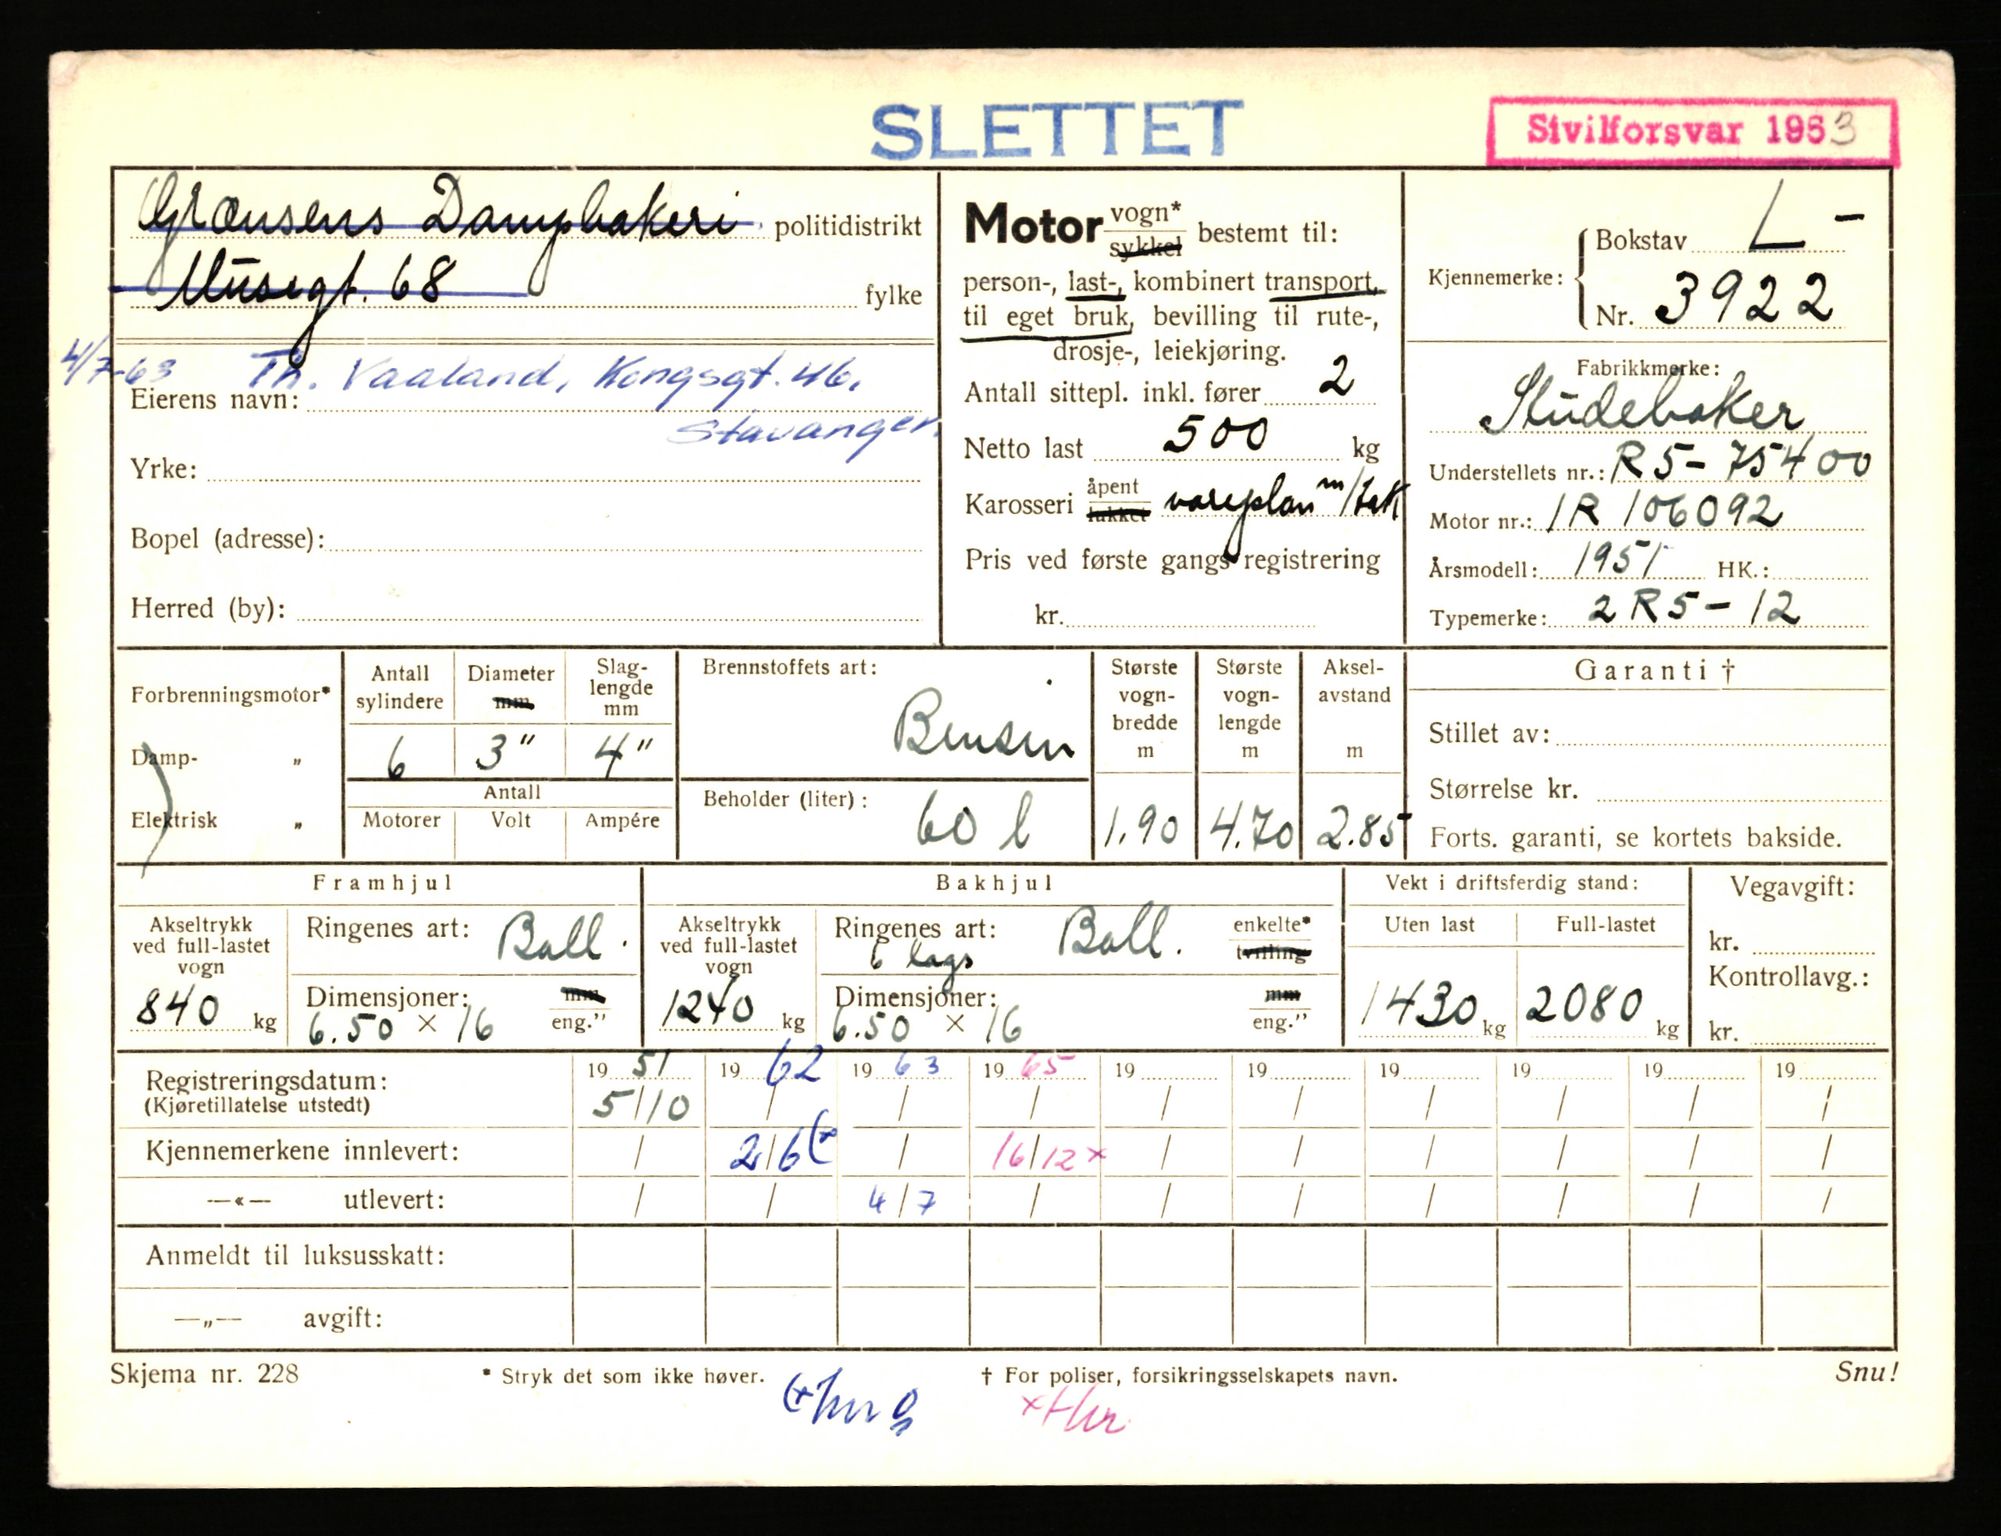 SLETTET
Sivilforsvar 1953
Grænsens Dampbakeri politidistrikt
Musegt. 68 fylke
4/7-63 Th. Vaaland, Kongsgt. 46.
Eierens navn:
Stavanger
Yrke:
Bopel (adresse):
Herred (by):
Motor vogn* sykkel bestemt til:
person-, last-, kombinert transport,
til eget bruk, bevilling til rute-,
drosje-, leiekjøring.
Antall sittepl. inkl. fører 2
Netto last 500 kg
Karosseri åpent lukket
Pris ved første gangs registrering
kr.
Kjennemerke: Bokstav L -
Nr. 3922
Fabrikkmerke:
Studebaker
Understellets nr.: R5-75400
Motor nr.: 1R 106092
Årsmodell: 1951 HK.:
Typemerke: 2R5-12
Forbrenningsmotor*
Damp- „
Elektrisk „
Antall sylindere Diameter mm Slag-lengde mm
6 3" 4"
Antall
Motorer Volt Ampére
Brennstoffets art:
Bensin
Beholder (liter): 60 l
Største vogn-bredde m Største vogn-lengde m Aksel-avstand m
1.90 4.70 2.85
Garanti †
Stillet av:
Størrelse kr.
Forts. garanti, se kortets bakside.
Framhjul
Akseltrykk ved full-lastet vogn
840 kg
Ringenes art: Ball.
Dimensjoner: mm
6.50 × 16 eng."
Bakhjul
Akseltrykk ved full-lastet vogn
1240 kg
Ringenes art: Ball. enkelte*
6 lags tvilling
Dimensjoner: mm
6.50 × 16 eng."
Vekt i driftsferdig stand:
Uten last Full-lastet
1430 kg 2080 kg
Vegavgift:
kr.
Kontrollavg.:
kr.
Registreringsdatum: 19 51 19 62 19 63 19 65 19 19 19 19 19 19
(Kjøretillatelse utstedt) 5/10 / / / / / / / / /
Kjennemerkene innlevert: / 2/6 (x / 16/12 x / / / / / /
—«— utlevert: / / 4/7 / / / / / / /
Anmeldt til luksusskatt:
—„— avgift:
Skjema nr. 228 * Stryk det som ikke høver. † For poliser, forsikringsselskapets navn. Snu!